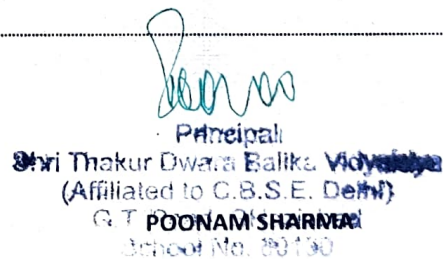 Principal
Shri Thakur Dwara Balika Vidyalaya
(Affiliated to C.B.S.E. Delhi)
G.T. POONAM SHARMA
School No.